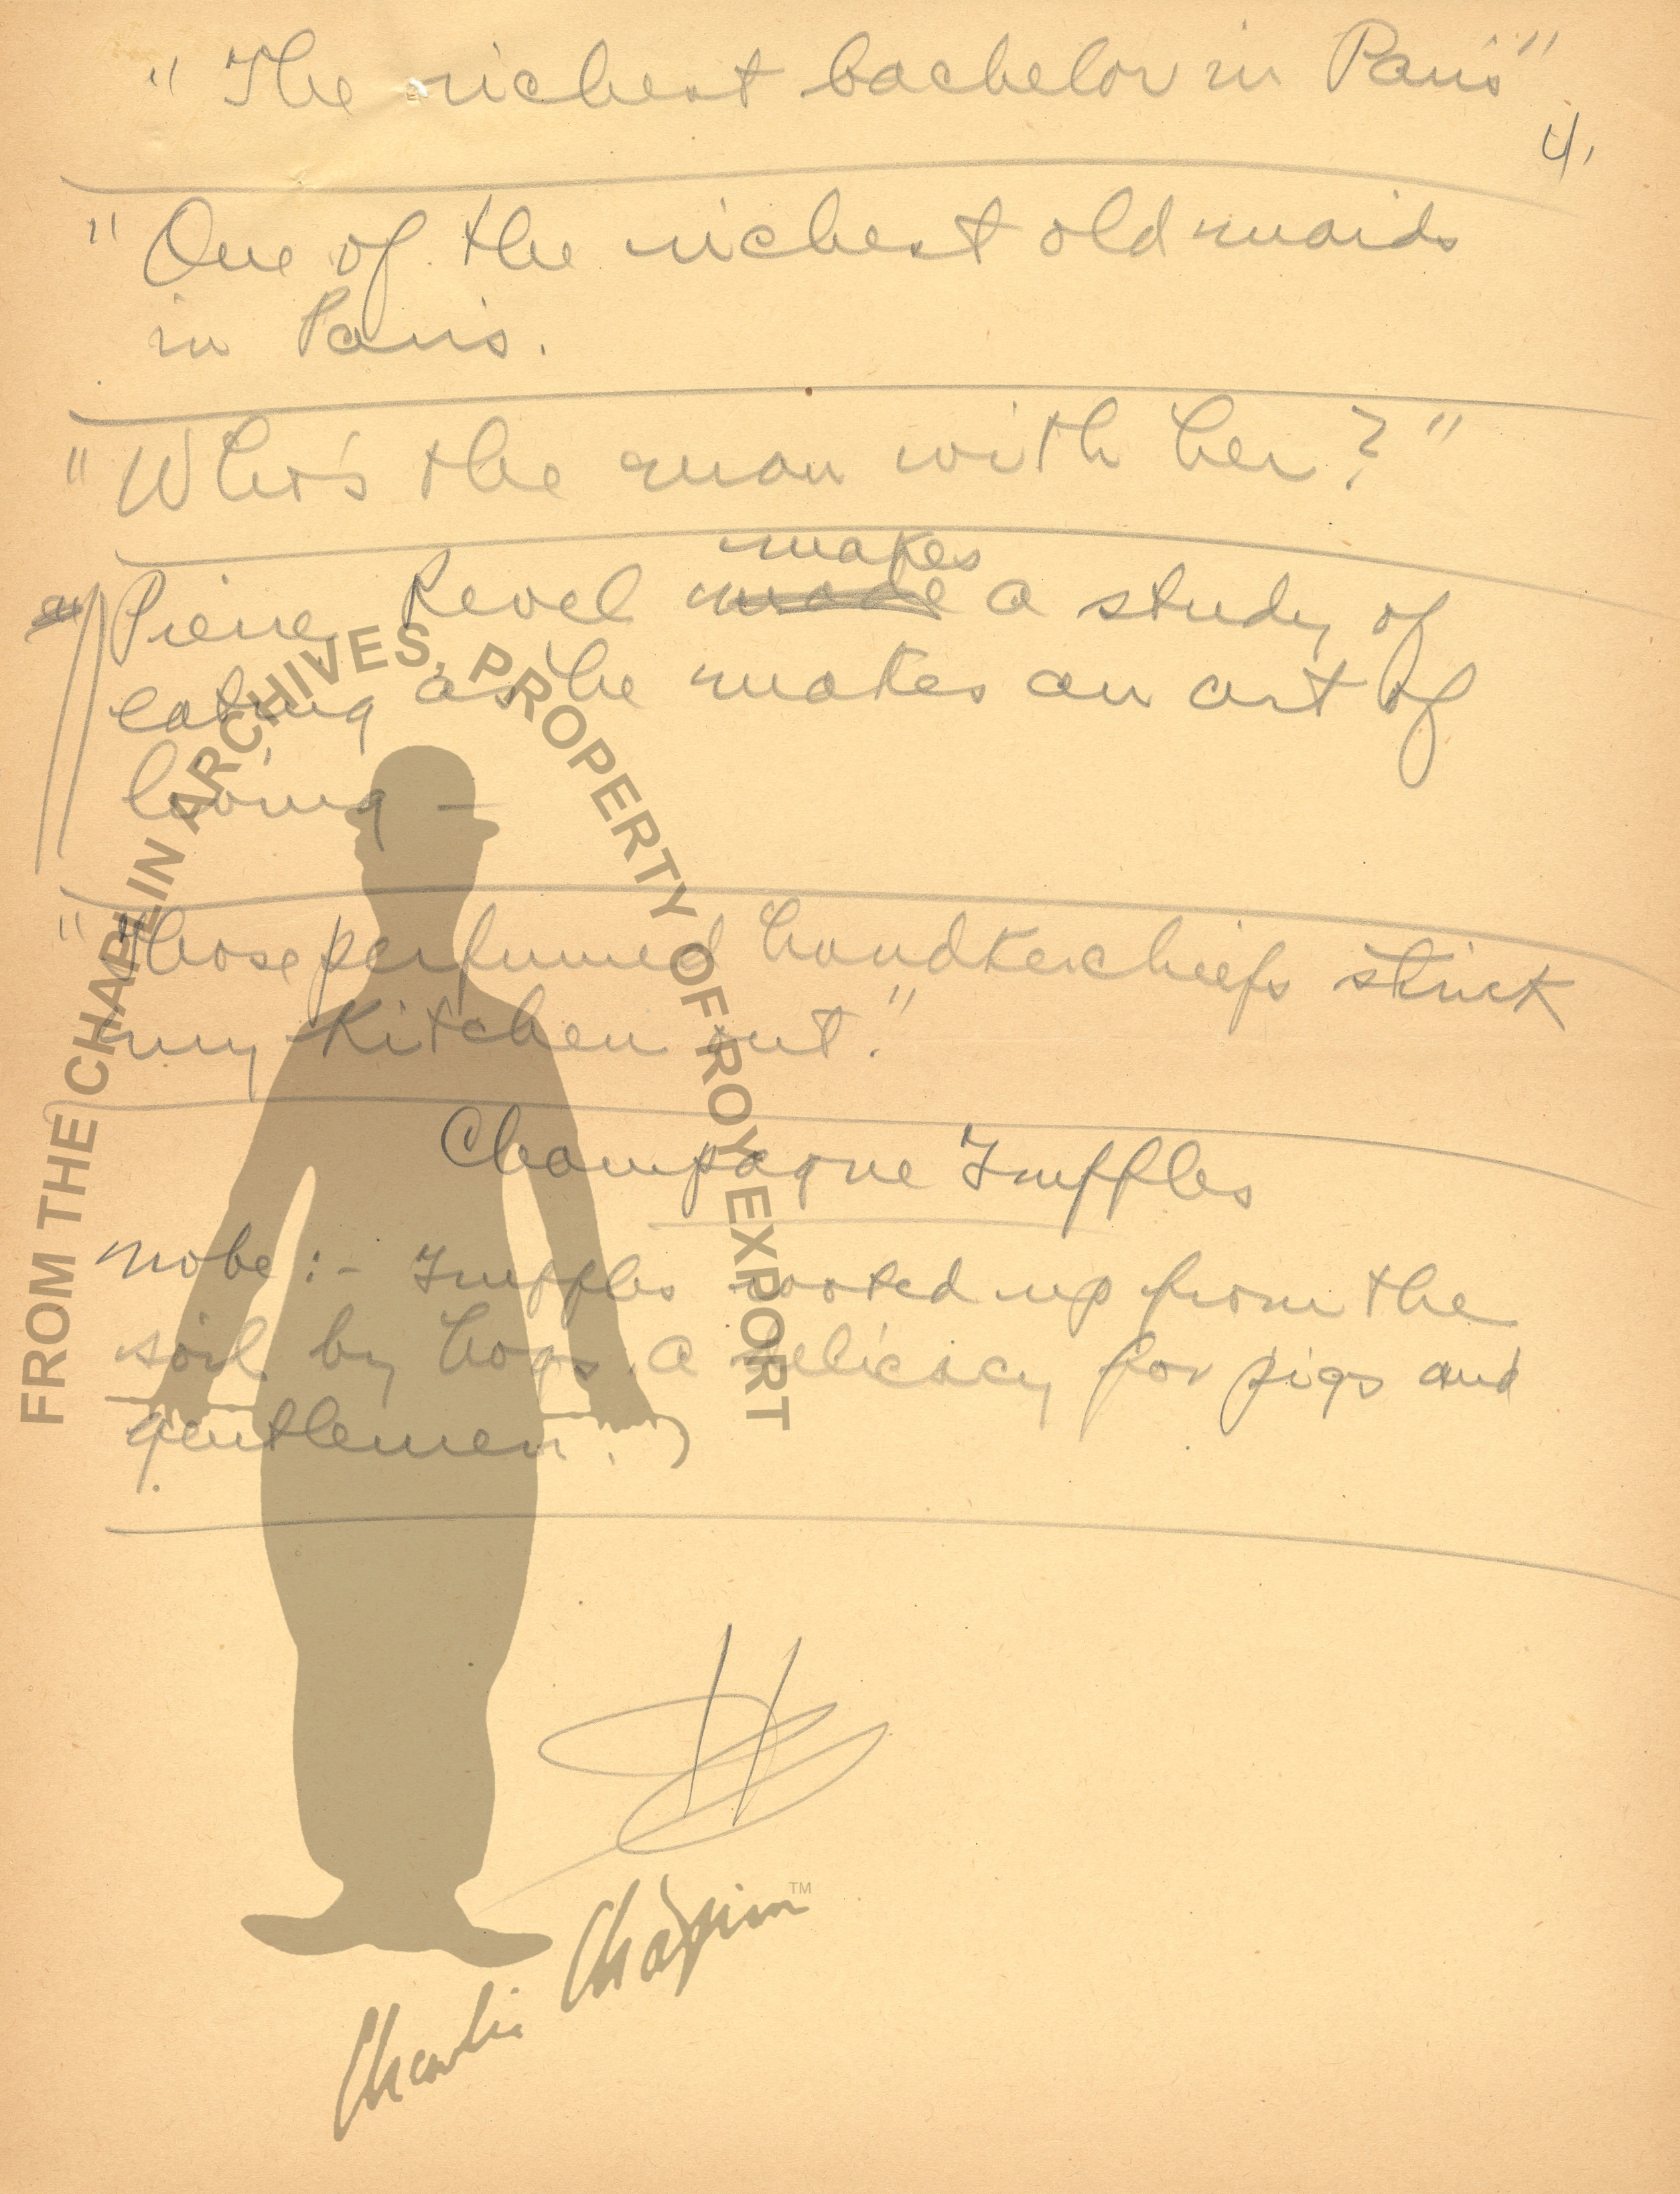 "The richest bachelor in Paris"
4,
"One of the richest old maids
in Paris.
"Who's the man with her?"
makes
Pierre Revel made a study of
eating as he makes an art of
loving –
"those perfumed handkerchiefs stink
my kitchen out."
Champagne Truffles
note :- Truffles rooted up from the
soil by hogs. a delicacy for pigs and
gentlemen.
FROM THE CHAPLIN ARCHIVES, PROPERTY OF ROY EXPORT
Charlie Chaplin™